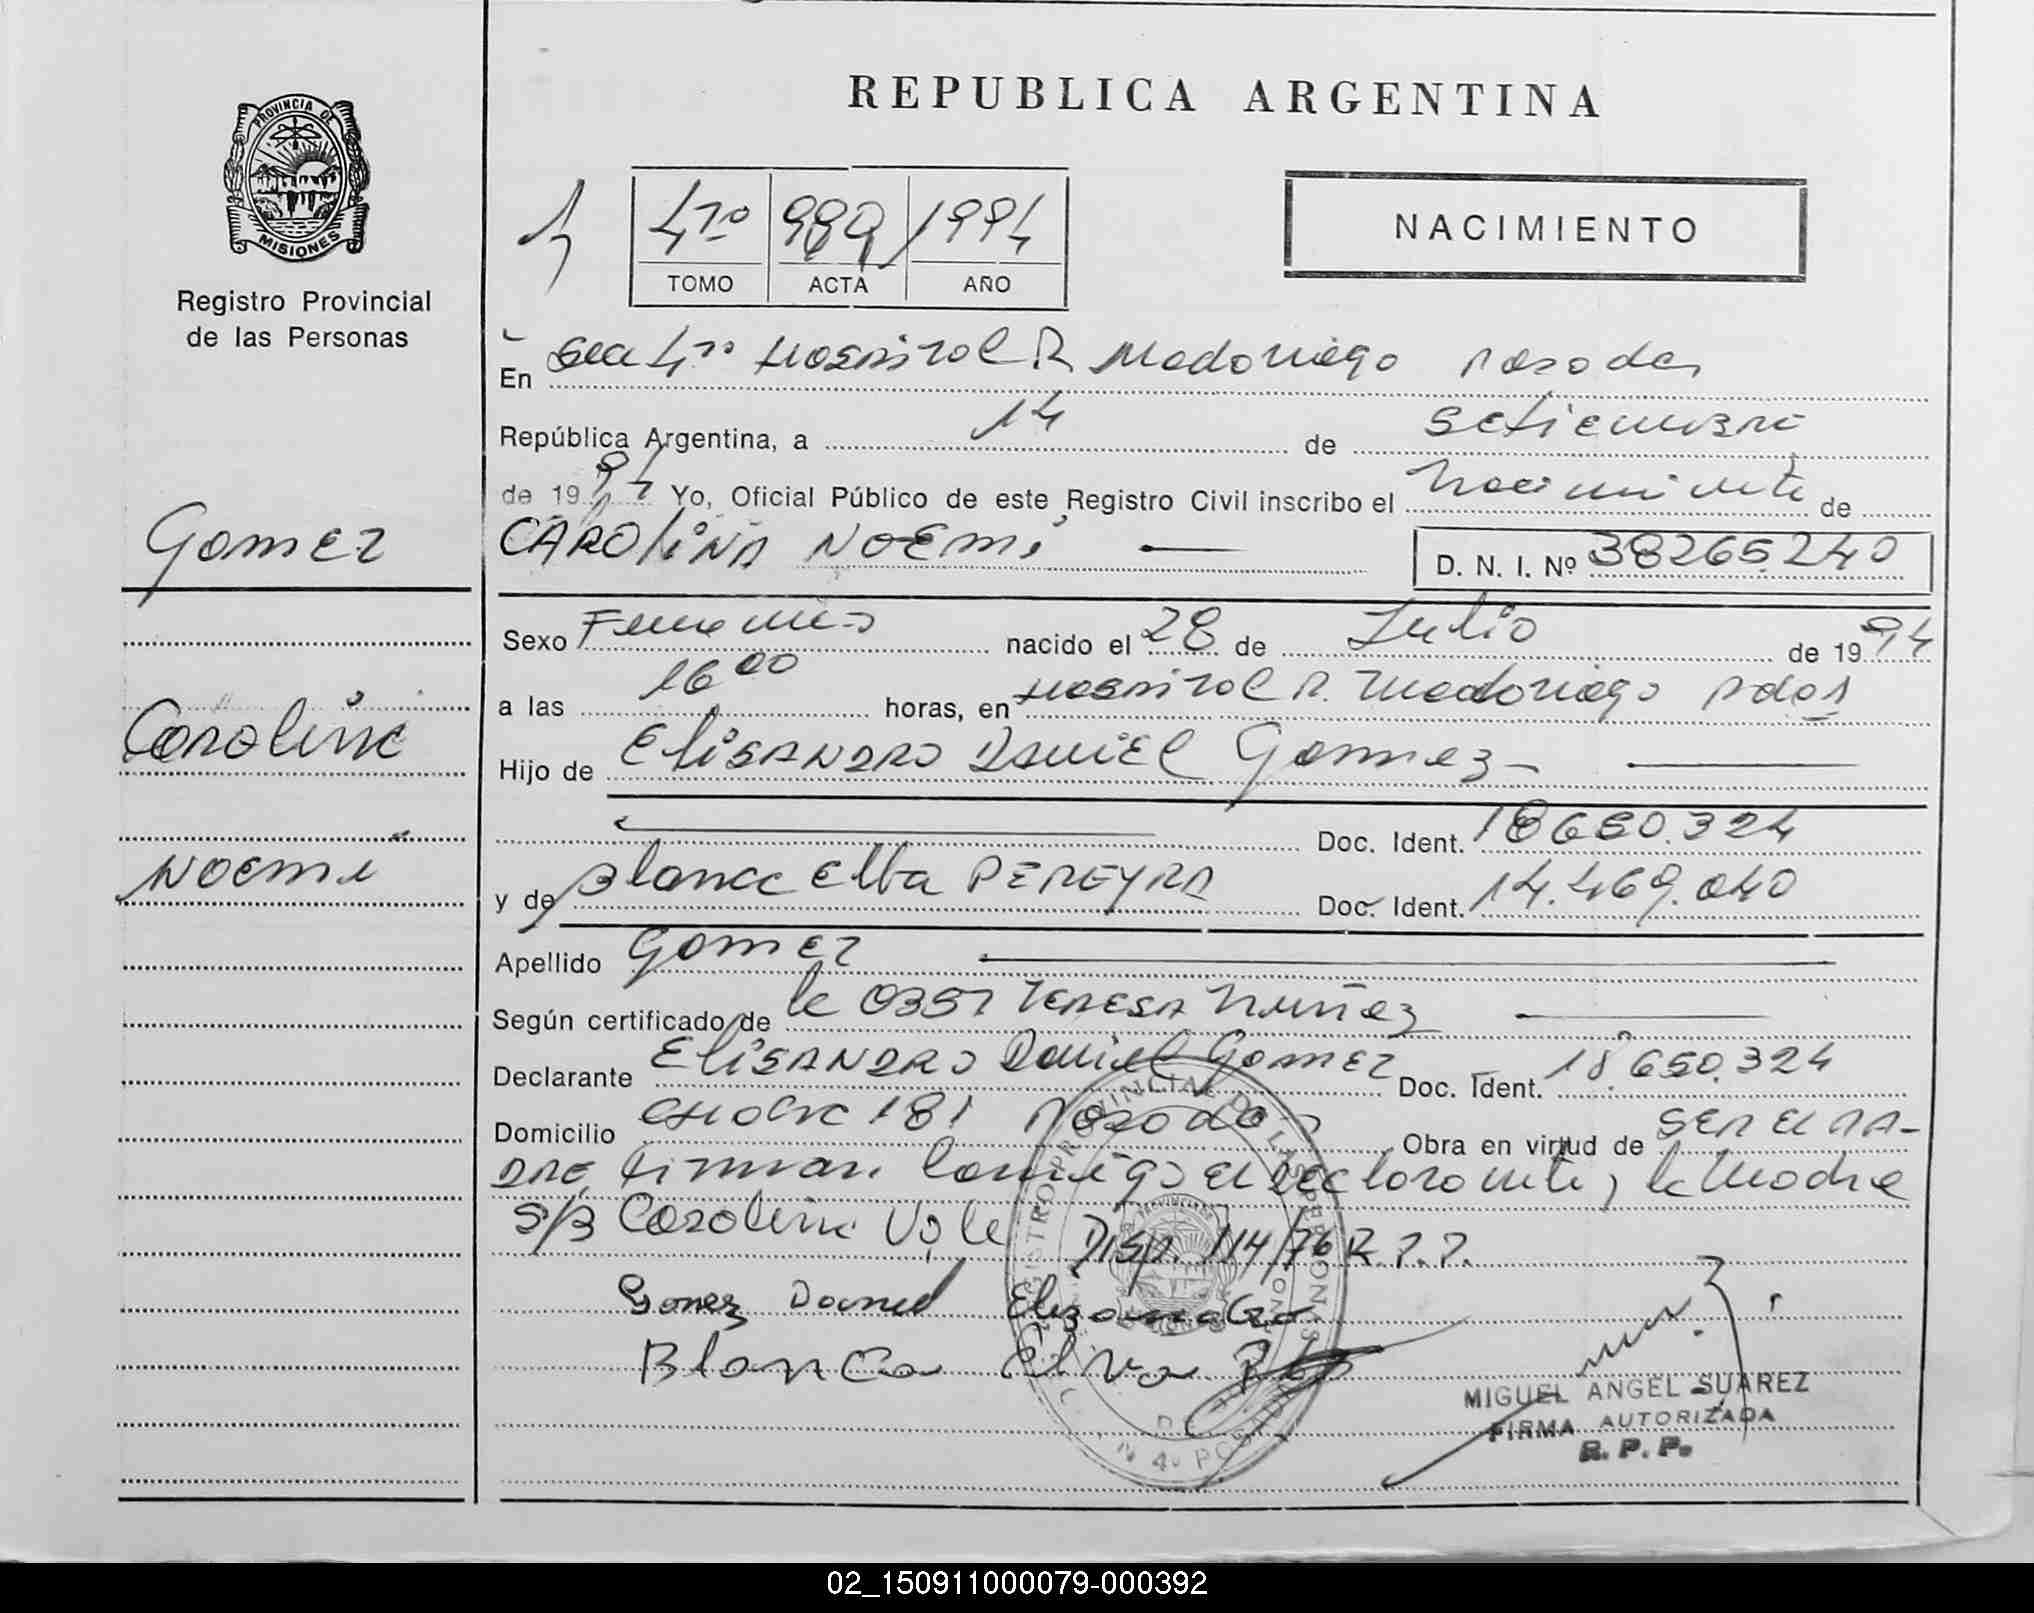 REPUBLICA ARGENTINA
PROVINCIA DE
MISIONES
Registro Provincial
de las Personas
4to 989 1994
TOMO ACTA AÑO
NACIMIENTO
En Sec 4ta Hospital R Madariaga Posadas
República Argentina, a 14 de Setiembre
de 1994 Yo, Oficial Público de este Registro Civil inscribo el Nacimiento de
CAROLINA NOEMI D. N. I. Nº 38265240
Gomez
Carolina
NOEMI
Sexo Femenino nacido el 28 de Julio de 1994
a las 16 00 horas, en Hospital R. Madariaga Pdas
Hijo de ELISANDRO DANIEL Gomez
Doc. Ident. 18650.324
y de Blanca Elba PEREYRA Doc. Ident. 14.469.040
Apellido GOMEZ
Según certificado de la 0357 TERESA Nuñez
Declarante ELISANDRO Daniel GOMEZ Doc. Ident. 18.650.324
Domicilio 181 Posadas Obra en virtud de SER EL PA-
DRE, Firman conmigo el Declarante y la Madre
S/B Carolina Vale Disp. 114/76 R.P.P.
Gomez Daniel Elizandro
Blanca Elva
REGISTRO PROVINCIAL DE LAS PERSONAS
MIGUEL ANGEL SUAREZ
FIRMA AUTORIZADA
R. P. P.
02_150911000079-000392